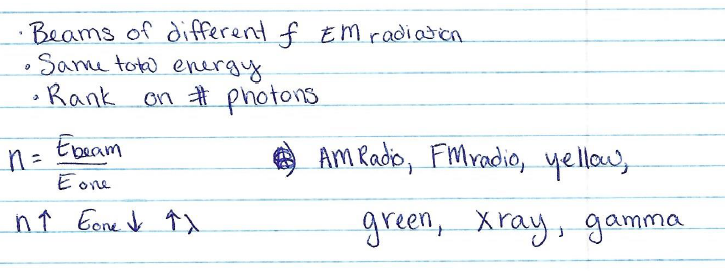 · Beams of different f EM radiation
• Same total energy
• Rank on # photons
n = Ebeam
Eone
AM Radio, FM radio, yellow,
n↑ Eone↓ ↑λ
green, xray, gamma